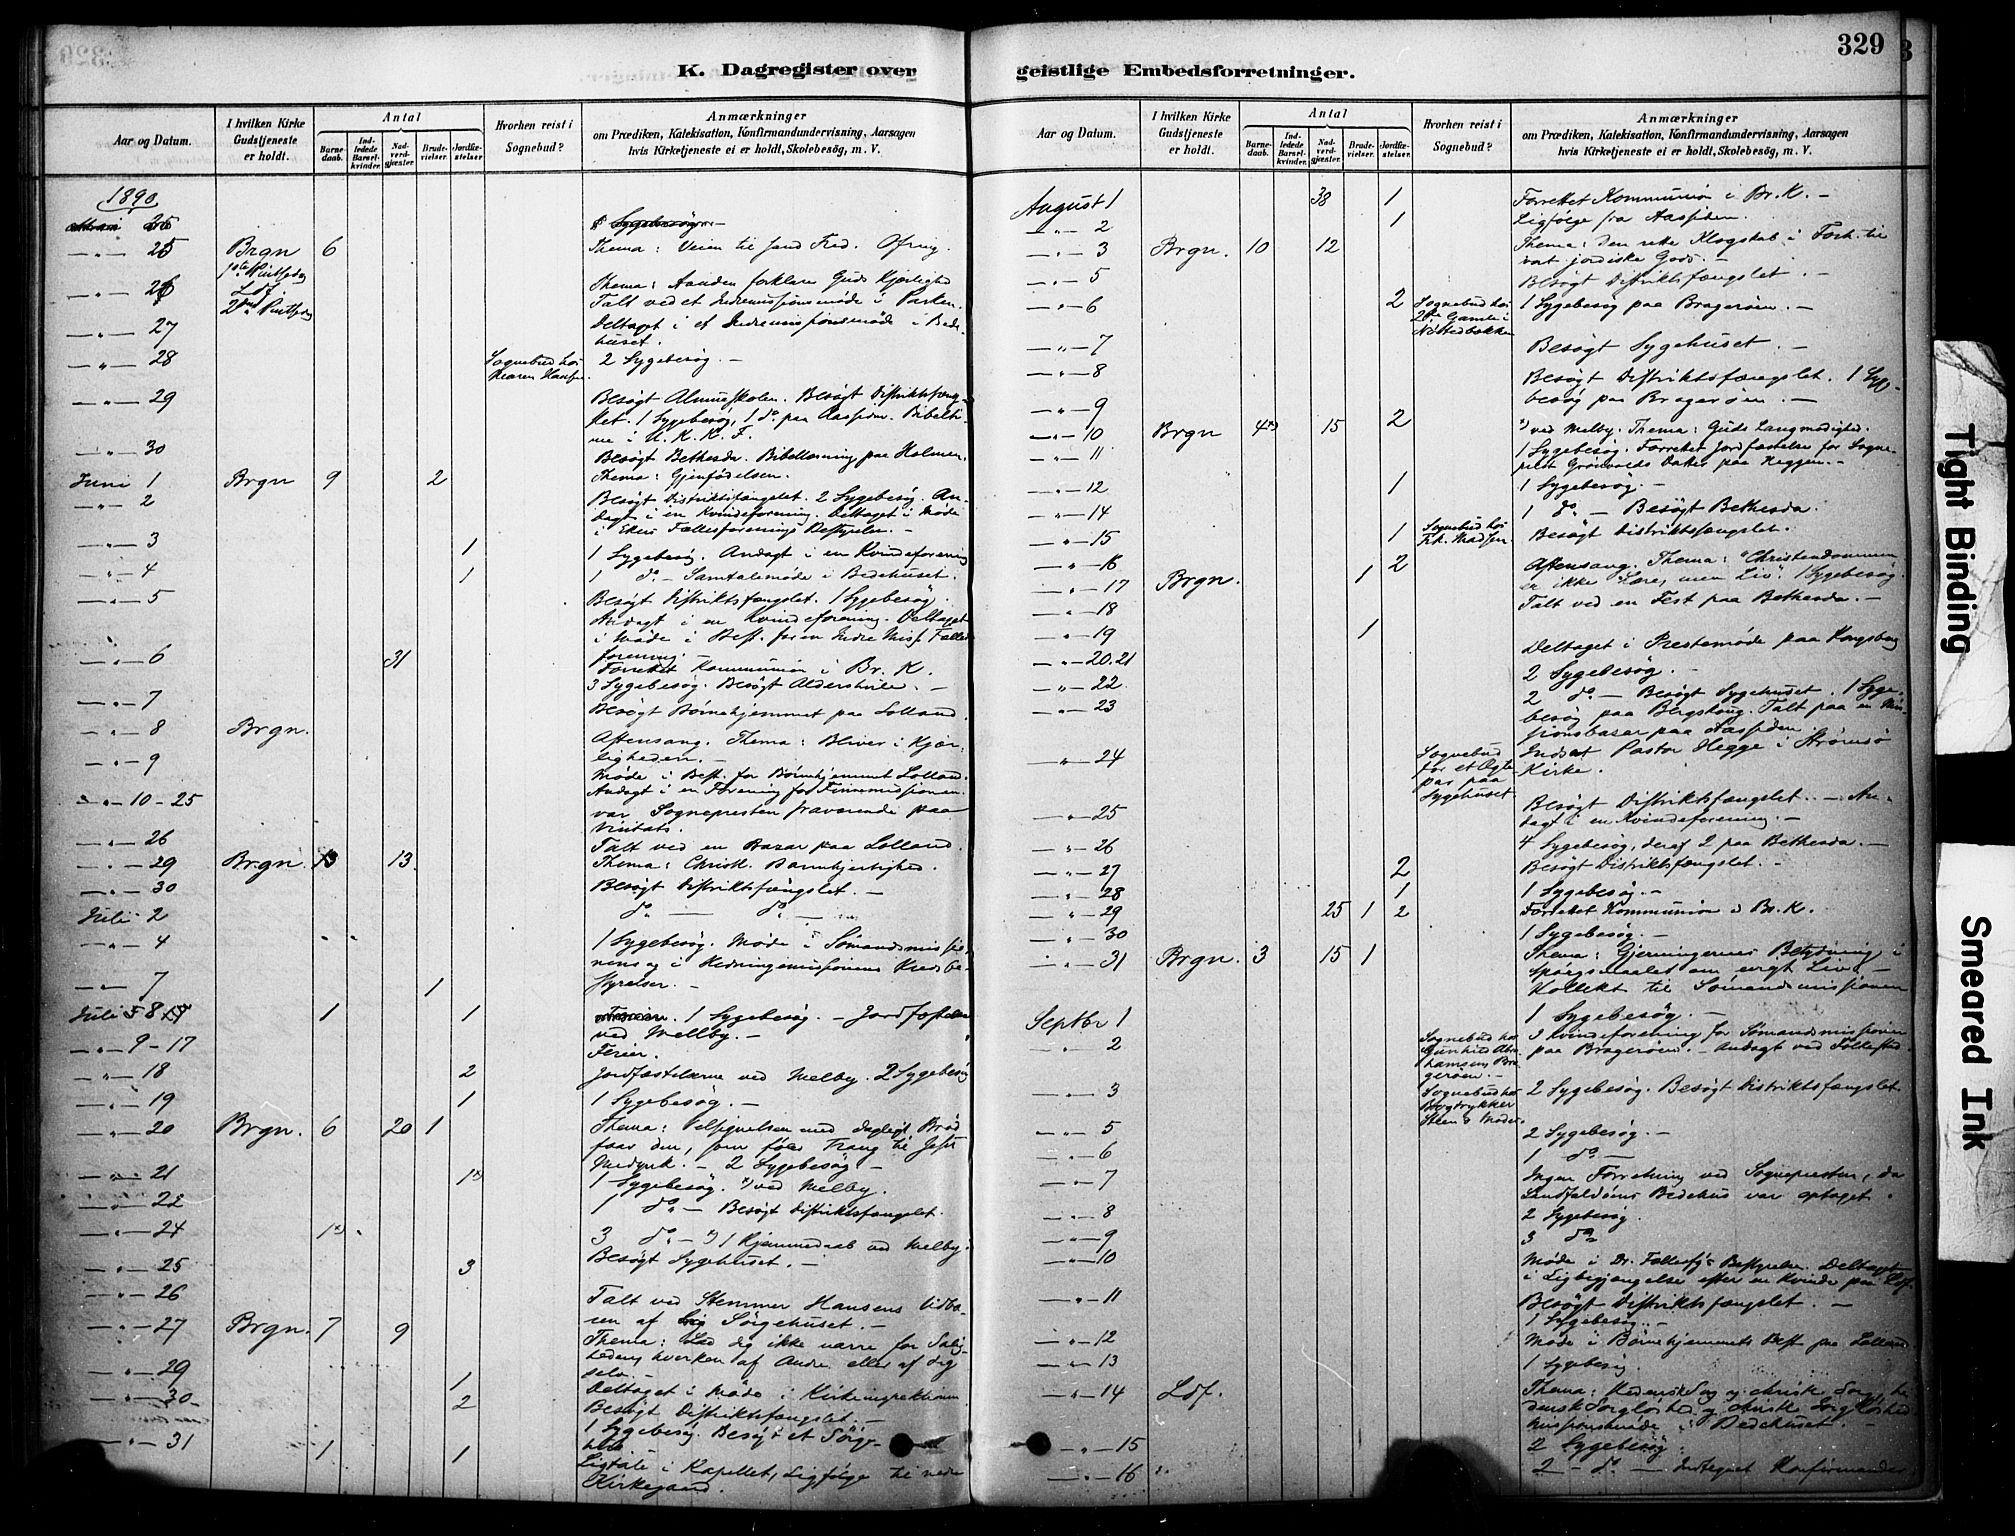 329
K. Dagregister over
Aar og Datum.
I hvilken Kirke Gudstjeneste er holdt.
Antal
Barne-daab.
Ind-ledede Barsel-kvinder.
Nad-verd-gjæster.
Brude-vielser.
Jordfæ-stelser
Hvorhen reist i Sognebud?
Anmærkninger
om Prædiken, Katekisation, Konfirmandundervisning, Aarsagen
hvis Kirketjeneste ei er holdt, Skolebesøg, m. V.
1890
25 Brgn 6 Thema: Veien til
1ste Pintsedag
26 Ldf. Thema: Aanden forklarer Guds Kjærlighed
2den Pintsedag Talt ved et Indremissionsmøde i Parken.
27 Deltaget i et Indremissionsmøde i Bede-
huset.
28 Sognebud hos Karen 2 Sygebesøg. —
29 Besøgt Almueskolen. Besøgt Distriktsfæng-
slet. 1 Sygebesøg, 1 do paa Aassiden. Bibelti-
me i U. K. K. F.
30 Besøgt Bethesda. Bibellæsning paa Holmen.
Juni 1 Brgn 9 2 Thema: Gjenfødelsen.
2 Besøgt Distriktsfængslet. 2 Sygebesøg. An-
dagt i en Kvindeforening. Deltaget i Møde
i Fællesforenings Bestyrelse. —
3 1 1 Sygebesøg. Andagt i en Kvindeforening
4 1 1 do — Samtalemøde i Bedehuset.
5 Besøgt Distriktsfængslet. 1 Sygebesøg.
Andagt i en Kvindeforening. Deltaget
i Møde i Best. for en Indre Miss. Fælles
forening.
6 31 Forrettet Kommunion i Br. K.
3 Sygebesøg. Besøgt Aldershvile. —
7 Besøgt Børnehjemmet paa Lolland.
8 Brgn. Aftensang. Thema: Bliver i Kjær-
ligheden. —
9 Møde i Best. for Børnehjemmet Lolland.
Andagt i en Forening for Finnemissionen.
10 - 25 var Sognepresten fraværende paa
Visitats.
26 Talt ved en Bazar paa Lolland.
29 Brgn. 13 13 Thema: Christl. Barmhjertighed.
30 Besøgt Distriktsfængslet. —
Juli 2 do — do —
4 1 Sygebesøg. Møde i Sømandsmissio-
nens og i Hedningemissionens Kredsbe-
styrelser. —
7 1
Juli 8 1 1 1 Sygebesøg. — Jordfæstelse
ved Mellby. —
9 - 17 Ferier.
18 2 Jordfæstelserne ved Melby. 2 Sygebesøg
19 1 1 Sygebesøg. —
20 Brgn. 6 20 1 Thema: Velsignelsen med dagligt Brød
faar den, som føler Trang til Jesu
Medynk. — 2 Sygebesøg —
21 1*) 1 Sygebesøg. *) ved Melby.
22 1 do — Besøgt Distriktsfængslet.
24 1*) 3 do — *) 1 Hjemmedaab ved Melby.
25 3 Besøgt Sygehuset. —
26 Talt ved Stemmer Hansens Udbæ-
ren af Sørgehuset. —
27 Brgn. 7 9 Thema: Lad dig ikke narre for Salig-
heden hverken af Andre eller af dig
selv. —
29 1 Deltaget i Møde i Kirkeinspektionen
30 2 Besøgt Distriktsfængslet. —
1 Sygebesøg. Besøgt et Sørge-
hus
31 1 1 Ligtale i Kapellet, Ligfølge til nedre
Kirkegaard.
geistlige Embedsforretninger.
Aar og Datum.
I hvilken Kirke Gudstjeneste er holdt.
Antal
Barne-daab.
Ind-ledede Barsel-kvinder.
Nad-verd-gjæster.
Brude-vielser.
Jordfæ-stelser.
Hvorhen reist i Sognebud?
Anmærkninger
om Prædiken, Katekisation, Konfirmandundervisning, Aarsagen
hvis Kirketjeneste ei er holdt, Skolebesøg, m. V.
August 1 38 1 Forrettet Kommunion i Br. K. —
2 1 Ligfølge fra Aassiden.
3 Brgn. 10 12 Thema: Den rette Klogskab i Forh. til
vort jordiske Gods. —
5 Besøgt Distriktsfængslet. —
6 2 Sognebud hos 2de Gamle i 1 Sygebesøg paa Bragerøen. —
7 Besøgt Sygehuset. —
8 Besøgt Distriktsfængslet. 1 Syge-
besøg paa Bragerøen. —
9 2
10 Brgn 4*) 15 *) ved Melby. Thema: Guds Langmodighed.
11 1 Sygebesøg. Forrettet Jordfæstelse for Sogne-
paa Heggen. —
12 1 1 Sygebesøg. —
14 1 do — Besøgt Bethesda.
15 1 Sognebud hos Frk. Madsen Besøgt Distriktsfængslet.
16 2 Aftensang. Thema: "Christendommen
17 Brgn. 1 er ikke Lære, men Liv". 1 Sygebesøg
18 Talt ved en Fest paa Bethesda. —
19 1
20.21 Deltaget i Prestemøde paa Kongsberg
22 2 Sygebesøg. —
23 2 do — Besøgt Sygehuset. 1 Syge-
besøg paa Bergskoug. Talt paa en Mis-
sionsbasar paa Aassiden
24 Sognebud for et Ægte-par paa Sygehuset Indsat Pastor Hegge i Strømsø
Kirke.
25 Besøgt Distriktsfængslet. — An-
dagt i en Kvindeforening. —
26 4 Sygebesøg, deraf 2 paa Bethesda. —
27 2 Besøgt Distriktsfængslet. —
28 1 1 Sygebesøg. —
29 25 1 2 Forrettet Kommunion i Br. K.
30 1 Sygebesøg. —
31 Brgn. 3 15 1 Thema: Gjerningernes Betydning i
Spørgsmaalet om evigt Liv. —
Kollekt til Sømandsmissionen
Septbr 1 1 Sygebesøg. —
2 Sognebud hos Gunhild Abrahamsen Bragerøen. — Kvindeforening for Sømandsmissionen
paa Bragerøen. — Andagt ved
3 Sognebud hos Bogtrykker Steens Moder. 2 Sygebesøg. Besøgt Distriktsfængslet
5 2 Sygebesøg. —
6 1 do —
7 Ingen Forretning ved Sognepresten, da
Landfaldøens Bedehus var optaget.
8 2 Sygebesøg.
9 3 do
10 Møde i Dr. Fællesf.s Bestyrelse. Deltaget
i Ligbegjængelse efter en Kvinde paa Ldf.
11 Besøgt Distriktsfængslet. —
1 Sygebesøg. —
12 Møde i Børnehjemmets Best. paa Lolland
13 1 Sygebesøg.
14 Ldf. Thema: Hedensk Sorg og christl. Sorg, he-
densk Sorgløshed og christl. Sorgløshed
Missionsmøde i Bedehuset.
15 2 Sygebesøg.
16 2 — do — Indtegnet Konfirmander.
Tight Binding
Smeared Ink